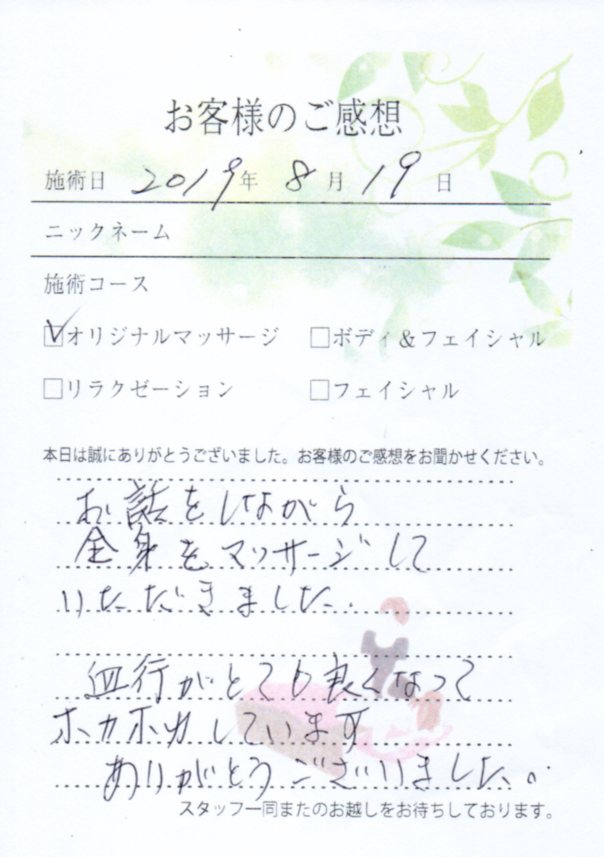 お客様のご感想
施術日 2019年 8月 19日
ニックネーム
施術コース
☑オリジナルマッサージ □ボディ＆フェイシャル
□リラクゼーション □フェイシャル
本日は誠にありがとうございました。お客様のご感想をお聞かせください。
お話をしながら
全身をマッサージして
いただきました.
血行がとても良くなって
ホカホカしています
ありがとうございました。
スタッフ一同またのお越しをお待ちしております。